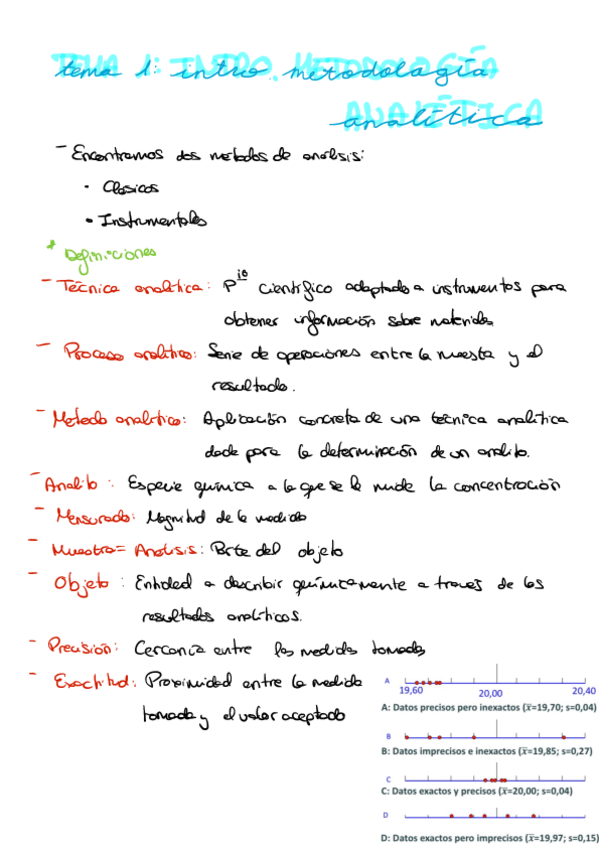 tema 1: intro. metodología
analítica
- Encontramos dos métodos de análisis:
• Clasicos
• Instrumentales
* Definiciones
- Técnica analítica: Pio científico adaptado a instrumentos para
obtener información sobre materides
- Proceso analítico: Serie de operaciones entre la muestra y el
resultado.
- Metodo analítico: Aplicación concreta de una técnica analítica
dada para la determinación de un analito.
- Analito: Especie química a la que se le mide la concentración
- Mensurado: Magnitud de la medida
- Muestra = Análisis: Parte del objeto
- Objeto: Entidad a describir químicamente a traves de los
resultados analíticos.
- Precisión: Cercanía entre las medidas tomadas
- Exactitud: Proximidad entre la medida
tomada y el valor aceptado
A
19,60 20,00 20,40
A: Datos precisos pero inexactos (x̅=19,70; s=0,04)
B
B: Datos imprecisos e inexactos (x̅=19,85; s=0,27)
C
C: Datos exactos y precisos (x̅=20,00; s=0,04)
D
D: Datos exactos pero imprecisos (x̅=19,97; s=0,15)